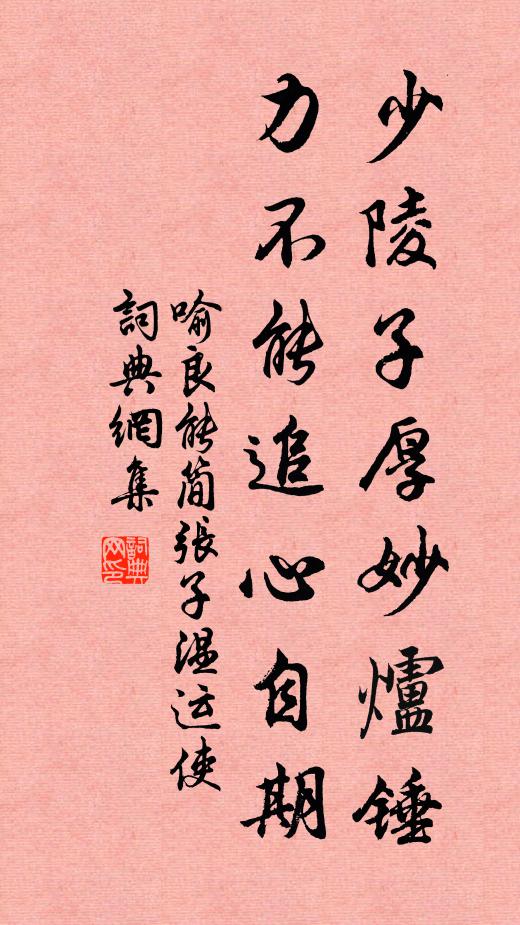 少陵子厚妙爐錘
力不能追心自期
喻良能简張子温运使
詞典網集
詞典网印